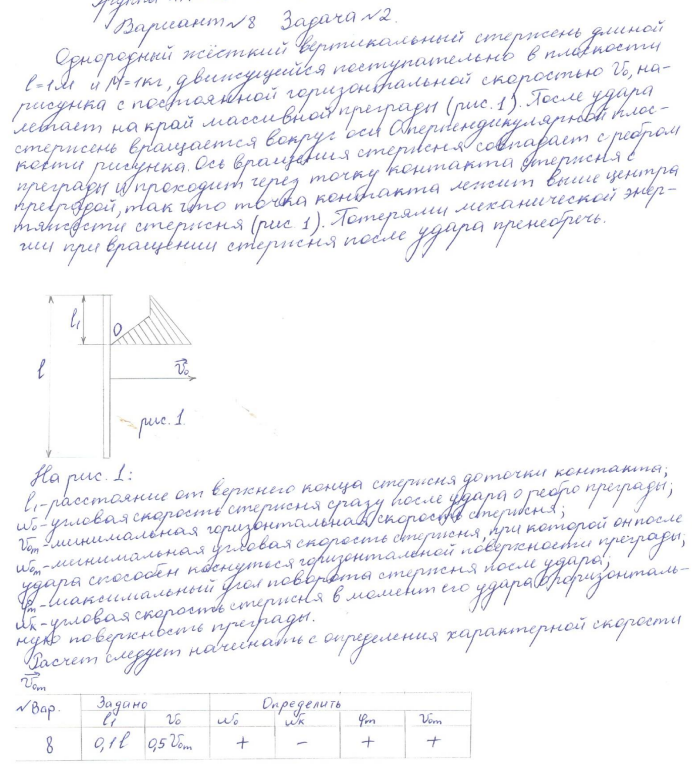 Вариант №8 Задача №2.
Однородный жёсткий вертикальный стержень длиной
l=1м и М=1кг, движущейся поступательно в плоскости
рисунка с постоянной горизонтальной скоростью V₀, на-
летает на край массивной преграды (рис. 1). После удара
стержень вращается вокруг оси О перпендикулярной плос-
кости рисунка. Ось вращения стержня совпадает с ребром
преграды и проходит через точку контакта стержня с
преградой, так что точка контакта лежит выше центра
тяжести стержня (рис. 1). Потерями механической энер-
гии при вращении стержня после удара пренебречь.
l₁
O
l
V₀
рис. 1.
На рис. 1:
l₁-расстояние от верхнего конца стержня до точки контакта;
ω₀-угловая скорость стержня сразу после удара о ребро преграды;
V₀m-минимальная горизонтальная скорость стержня;
ω₀m-минимальная угловая скорость стержня, при которой он после
удара способен коснуться горизонтальной поверхности преграды;
φm-максимальный угол поворота стержня после удара;
ωк-угловая скорость стержня в момент его удара о горизонталь-
ную поверхность преграды.
Расчет следует начинать с определения характерной скорости
V₀m
№Вар. Задано Определить
l₁ V₀ ω₀ ωк φm V₀m
8 0,1l 0,5V₀m + - + +